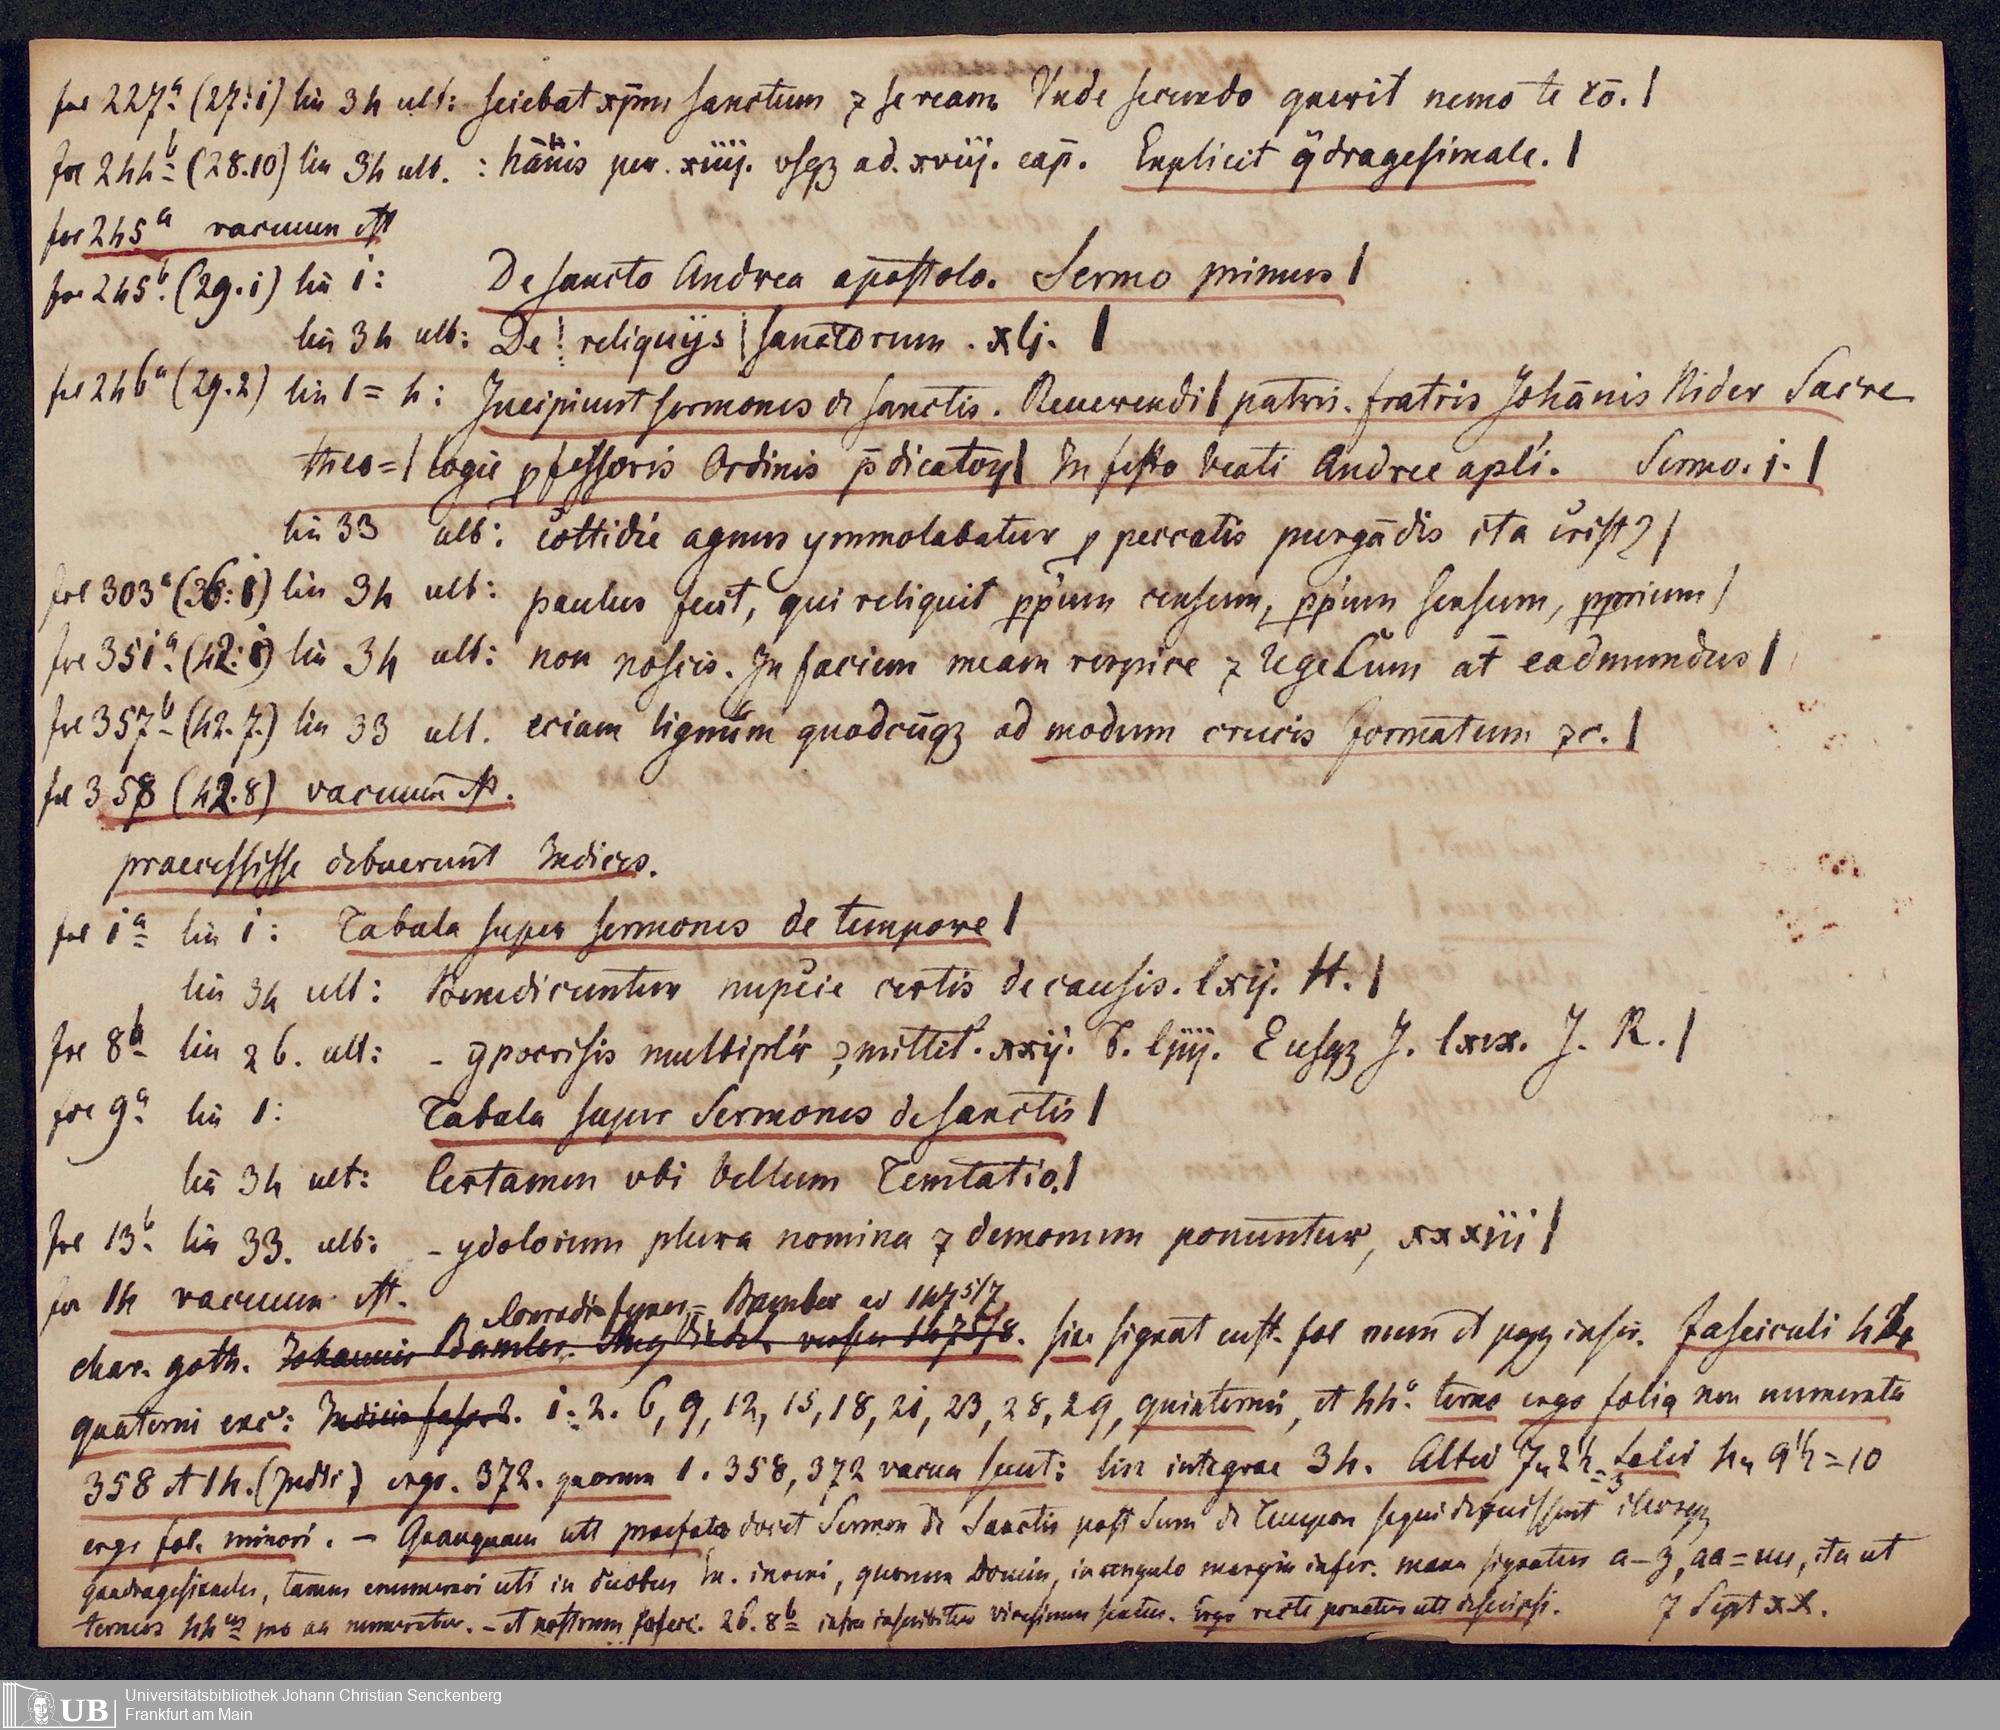 fol 227a (27.i) lin 34 ult: sciebat xp̄m sanctum ⁊ se ream Vnde secundo querit nemo te
fol 244b (28.10) lin 34 ult. : hānis per. xiiij. vsqꝫ ad. xviij. cap̄. Explicit q̈dragesimale. |
fol 245a vacuum est
fol 245b. (29.i) lin i: De sancto Andrea apostolo. Sermo primus |
lin 34 ult: De | reliquijs | sanctorum . xlj. |
fol 246a (29.2) lin 1=4: Incipiunt sermones de sanctis. Reuerendi | patris. fratris Johānis Nider Sacre
theo=| logie ꝓfessoris Ordinis p̄dicatoꝝ | In festo beati Andree apl'i. Sermo. i. |
lin 33 ult: cottidie agnus ymmolabatur ꝓ peccatis purgādis ita
fol 303a (36.i) lin 34 ult: paulus fecit, qui reliquit ꝓp'ium censum, ꝓp'ium sensum, ꝓprium |
fol 35ia (42.i) lin 34 ult: non noscis. In faciem meam respice ⁊ at̄ eadmundus |
fol 357b (42.7.) lin 33 ult. eciam lignum quodcūqꝫ ad modum crucis formatum ⁊c. |
fol 358 (42.8) vacuum est.
praecessisse debuerunt Indices.
fol ia lin i: Tabula super sermones de tempore |
lin 34 ult: Benedicuntur nupcie certis de causis. lxij. H. |
fol 8b lin 26. ult: - ypocrisis multipl'r ꝯmittit'. xxij. T. liij. E usqꝫ J. lxix. J. R. |
fol 9a lin 1: Tabula super Sermones de sanctis |
lin 34 ult: Certamen vbi bellum Temtatio. |
fol 13b. lin 33. ult: - ydolorum plura nomina ⁊ demonum ponuntur, xxxiii |
fol 14 vacuum est.
Conradi fyner =
char. goth. Johannis Bamler. sine signat cust. fol num et pagg inscr. fasciculi
quaterni exc: Indicis i. 2. 6, 9, 12, 15, 18, 21, 23, 28, 29, quinterni, et terno ergo folia non numerata
358 et 14. ergo. 372. quorum 1. 358, 372 vacua sunt: lin integrae 34.
ergo fol. minori. - Quanquam uti praefatio docet Sermon de Sanctis post Serm de Tempore
quadragesimales, tamen enumerari uti in duobus in angulo margin infer. manu signatus a-z, aa= ita ut
ternus pro aa numeratur. - et nostrum fascic. 26. 8b infra inscribitur vicesimus sextus. Ergo recte ponetur uti descripsi. 7 Sept
Universitätsbibliothek Johann Christian Senckenberg
UB
Frankfurt am Main